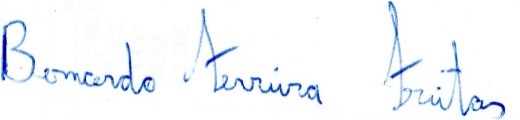 Bernardo Ferreira Freitas